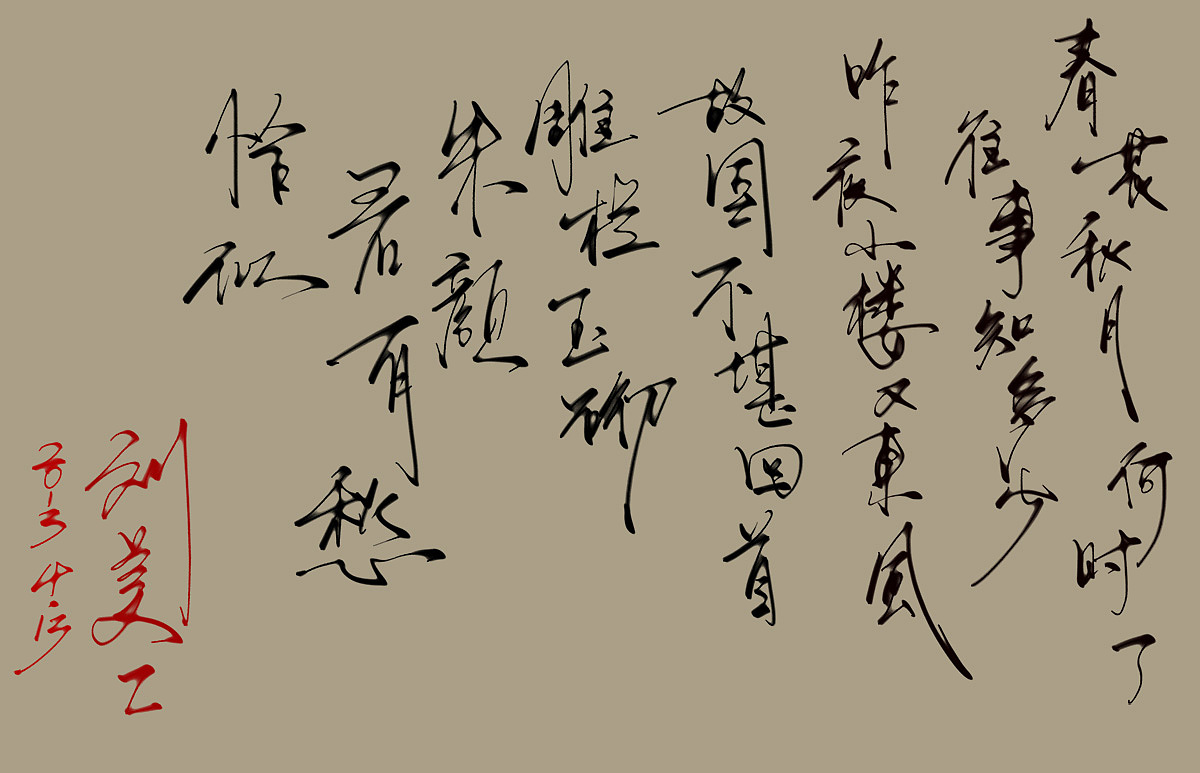 春花秋月何时了
往事知多少
昨夜小楼又東風
故国不堪回首
雕栏玉砌
朱颜
君有愁
恰似
刘